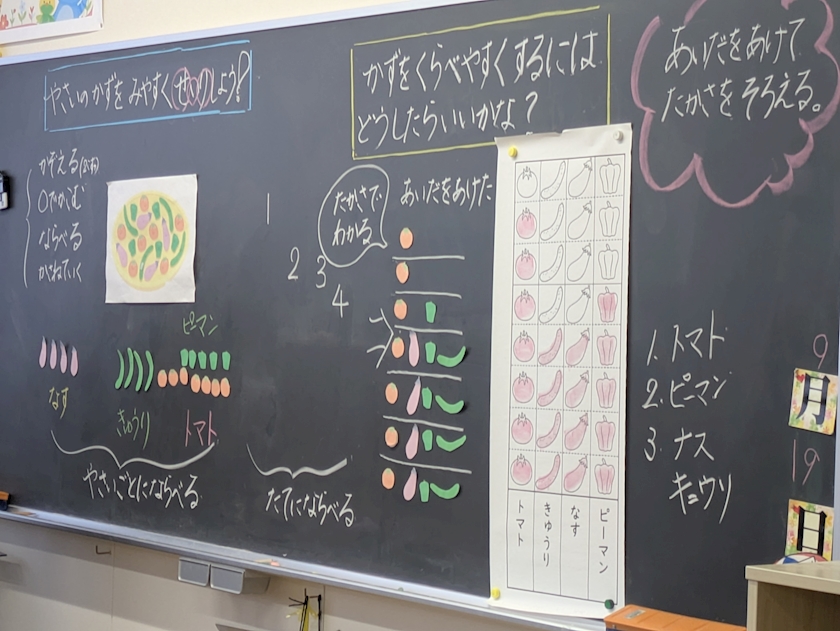 やさいのかずを みやすく せいりしよう!
かぞえる
○でかこむ
ならべる
かさねていく
なす
きゅうり
ピーマン
トマト
やさいごとにならべる
1
2
3
4
たてにならべる
かずをくらべやすくするには
どうしたらいいかな?
たかさで
わかる
あいだをあけた
トマト
きゅうり
なす
ピーマン
あいだをあけて
たかさをそろえる。
1. トマト
2. ピーマン
3. ナス
キュウリ
9
月
19
日